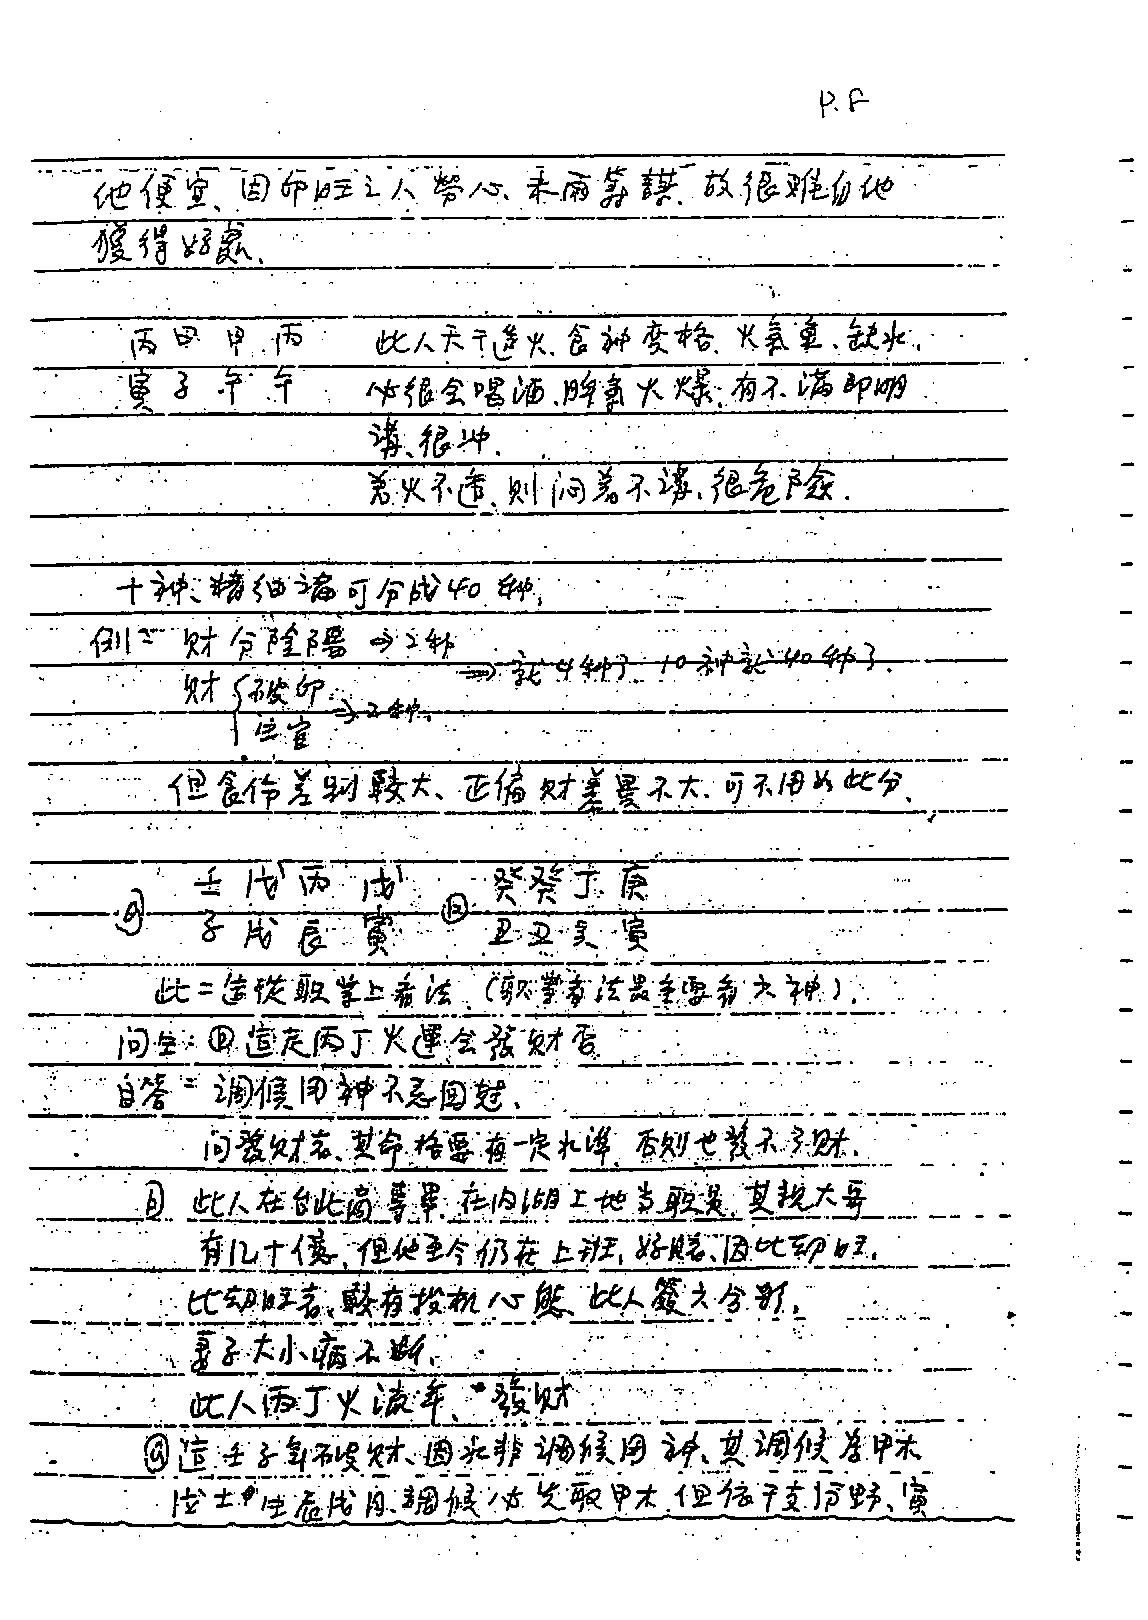 P.F
他便宜、因印旺之人勞心、未雨籌謀、故很難自他
獲得好處、
丙甲甲丙 此人天干透火、食神变格、火氣重、缺水、
寅子午午 必很会喝酒、脾氣火爆、有不滿即明
講、很冲、
若火不透、則悶著不講、很危險、
十神、精細講可分成40种、
例= 财分陰陽 ⇒2种
财{破印 ⇒2种、 ⇒就4种了 10神就40种了、
生官
但食伤差別較大、正偏财差異不大、可不用如此分、
Ⓐ 壬戊丙戊 Ⓑ 癸癸丁庚
子戌辰寅 丑丑亥寅
此二造從职業上看法、(职業看法最主要看六神)、
问生: Ⓑ造走丙丁火運会發财否
自答= 调候用神不忌回尅、
问發财者、其命格要有一定水準、否則也發不了财、
Ⓑ 此人在台北高等畢、在内湖工地当职員、其親大哥
有几十億、但他至今仍在上班、好賭、因比劫旺、
比劫旺者、較有投机心態、此人簽六合彩、
妻子大小病不断、
此人丙丁火流年、發财
Ⓐ造壬子年破财、因水非调候用神、其调候為甲木
戊土生辰戌月、調候必先取甲木、但依干支分野、寅